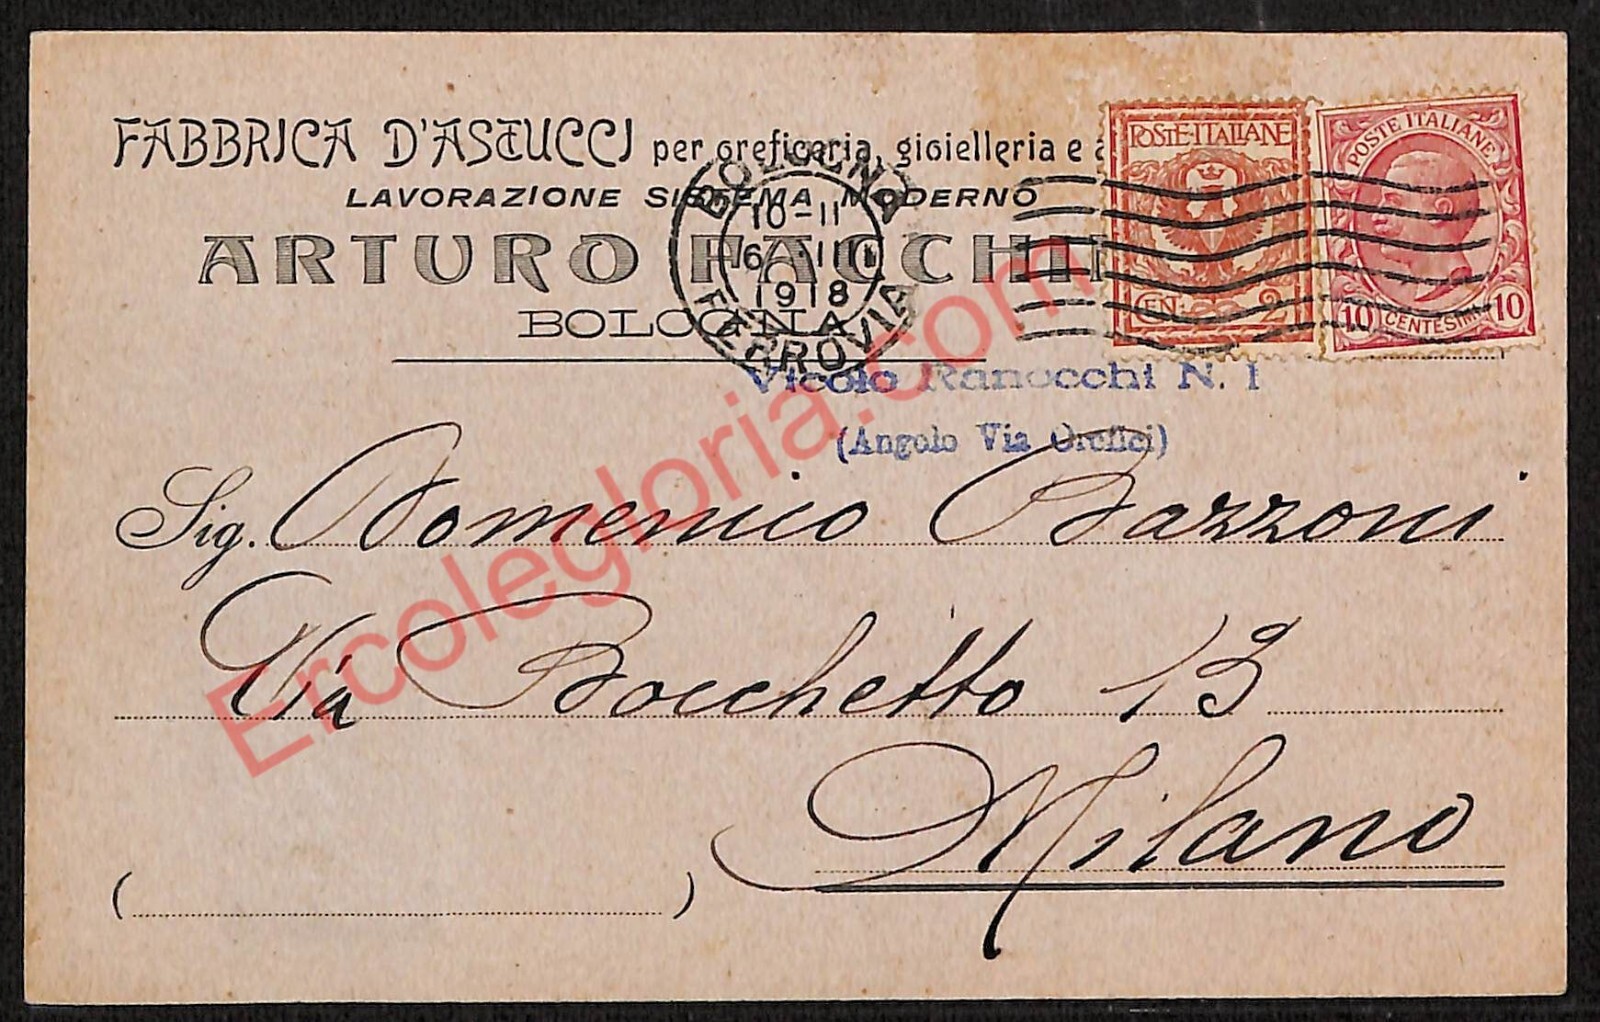 FABBRICA D'ASTUCCI per oreficeria, gioielleria e
LAVORAZIONE SISTEMA MODERNO
ARTURO FACCHI
BOLOGNA
Vicolo Ranocchi N. 1
(Angolo Via Orefici)
BOLOGNA
10-11
6 III
1918
FERROVIA
POSTE·ITALIANE
CEN: 2
POSTE ITALIANE
10 CENTESIMI 10
Sig. Domenico Bazzoni
Via Bocchetto 13
Milano
( )
Ercolegloria.com